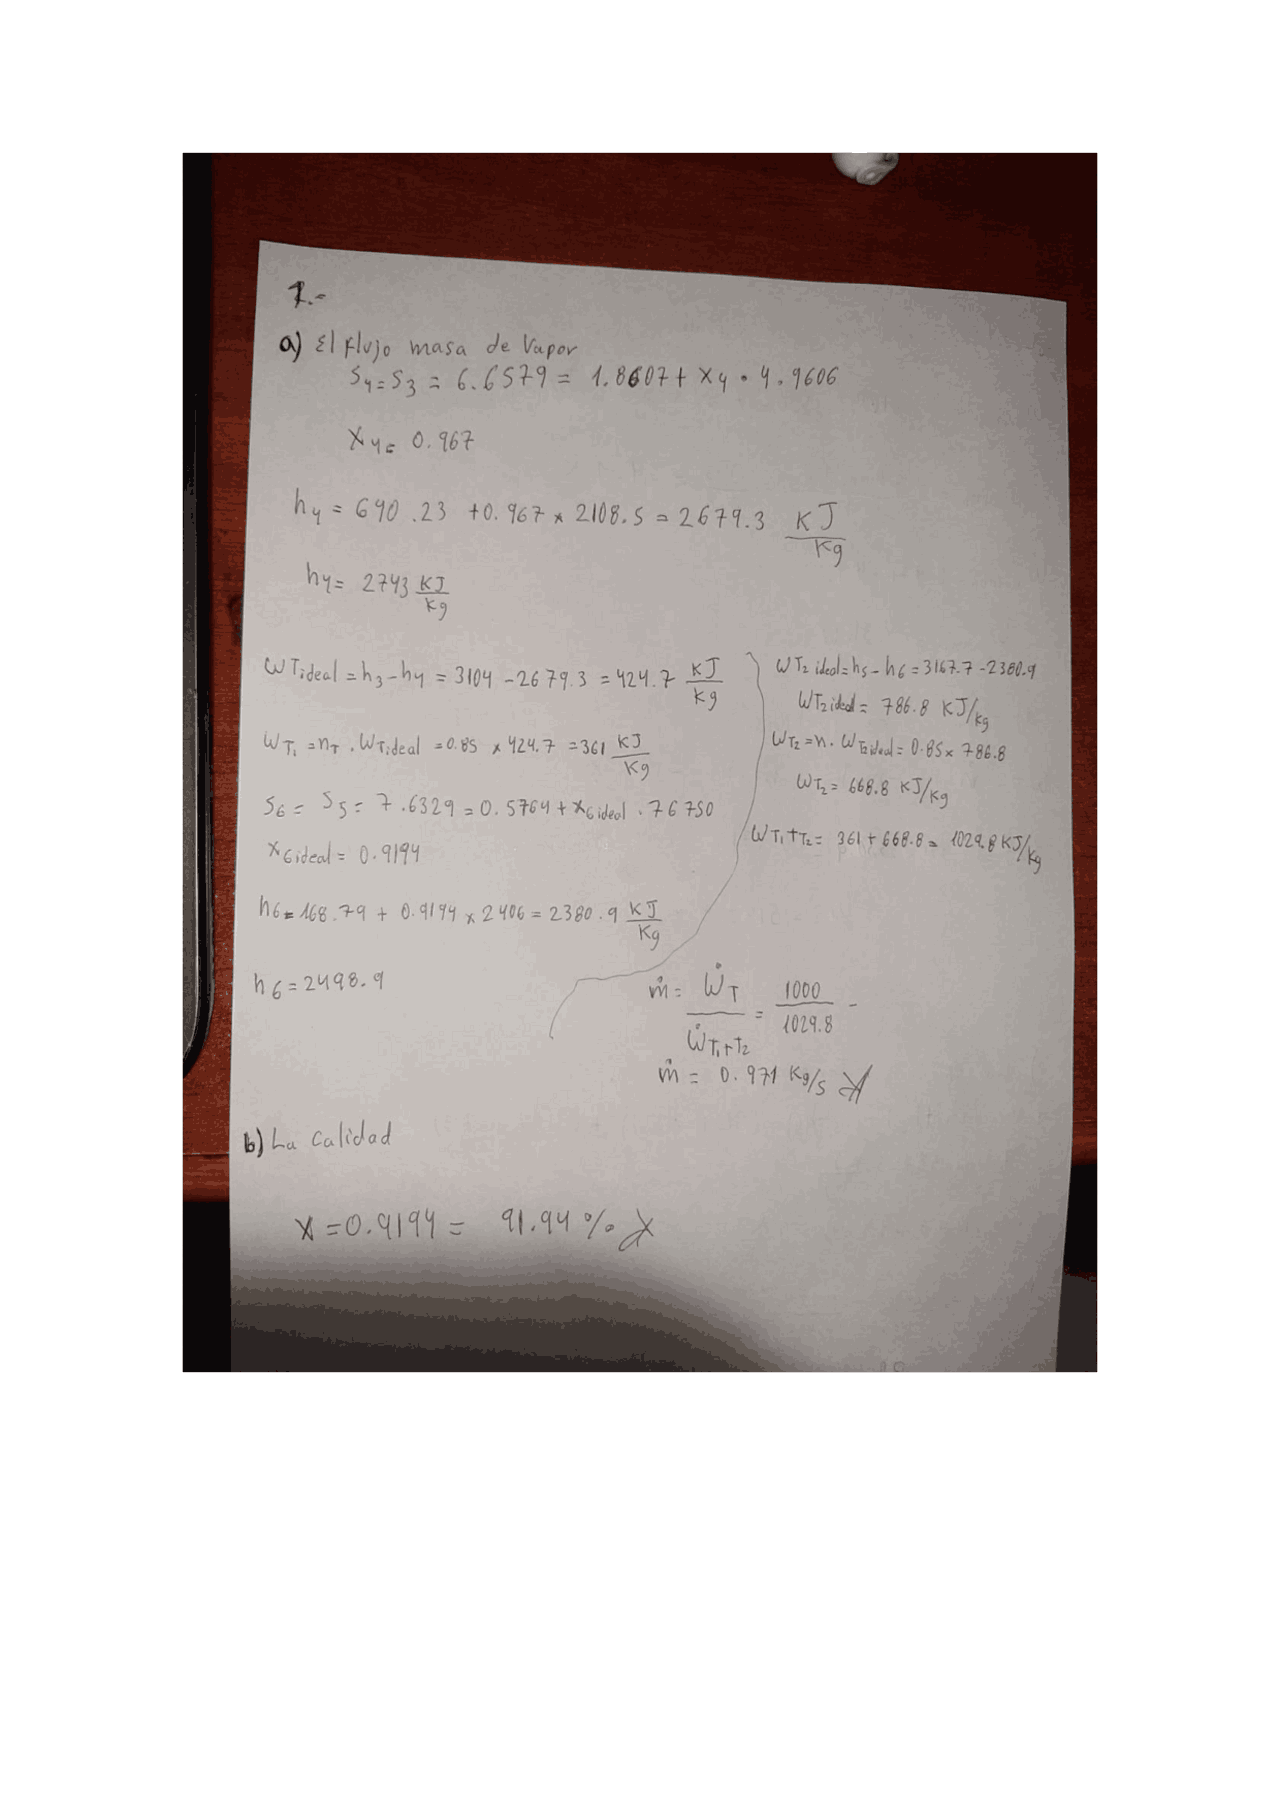 1.-
a) El flujo masa de Vapor
S4=S3 = 6.6579 = 1.8607 + X4 • 4.9606
X4= 0.967
h4 = 640.23 +0.967 x 2108.5 = 2679.3 KJ/Kg
h4= 2743 KJ/Kg
WT1ideal = h3-h4 = 3104 - 2679.3 = 424.7 KJ/Kg
WT1 = nT . WT1ideal = 0.85 x 424.7 = 361 KJ/Kg
S6 = S5 = 7.6329 = 0.5764 + X6ideal . 76750
X6ideal = 0.9194
h6= 168.79 + 0.9194 x 2406 = 2380.9 KJ/Kg
h6 = 2498.9
WT2 ideal = h5 - h6 = 3167.7 - 2380.9
WT2 ideal = 786.8 KJ/kg
WT2 = n. WT2ideal = 0.85 x 786.8
WT2= 668.8 KJ/kg
WT1+T2 = 361 + 668.8 = 1029.8 KJ/kg
ṁ = ẆT/ẆT1+T2 = 1000/1029.8 -
ṁ = 0.971 Kg/s
b) La Calidad
X = 0.9194 = 91.94 %